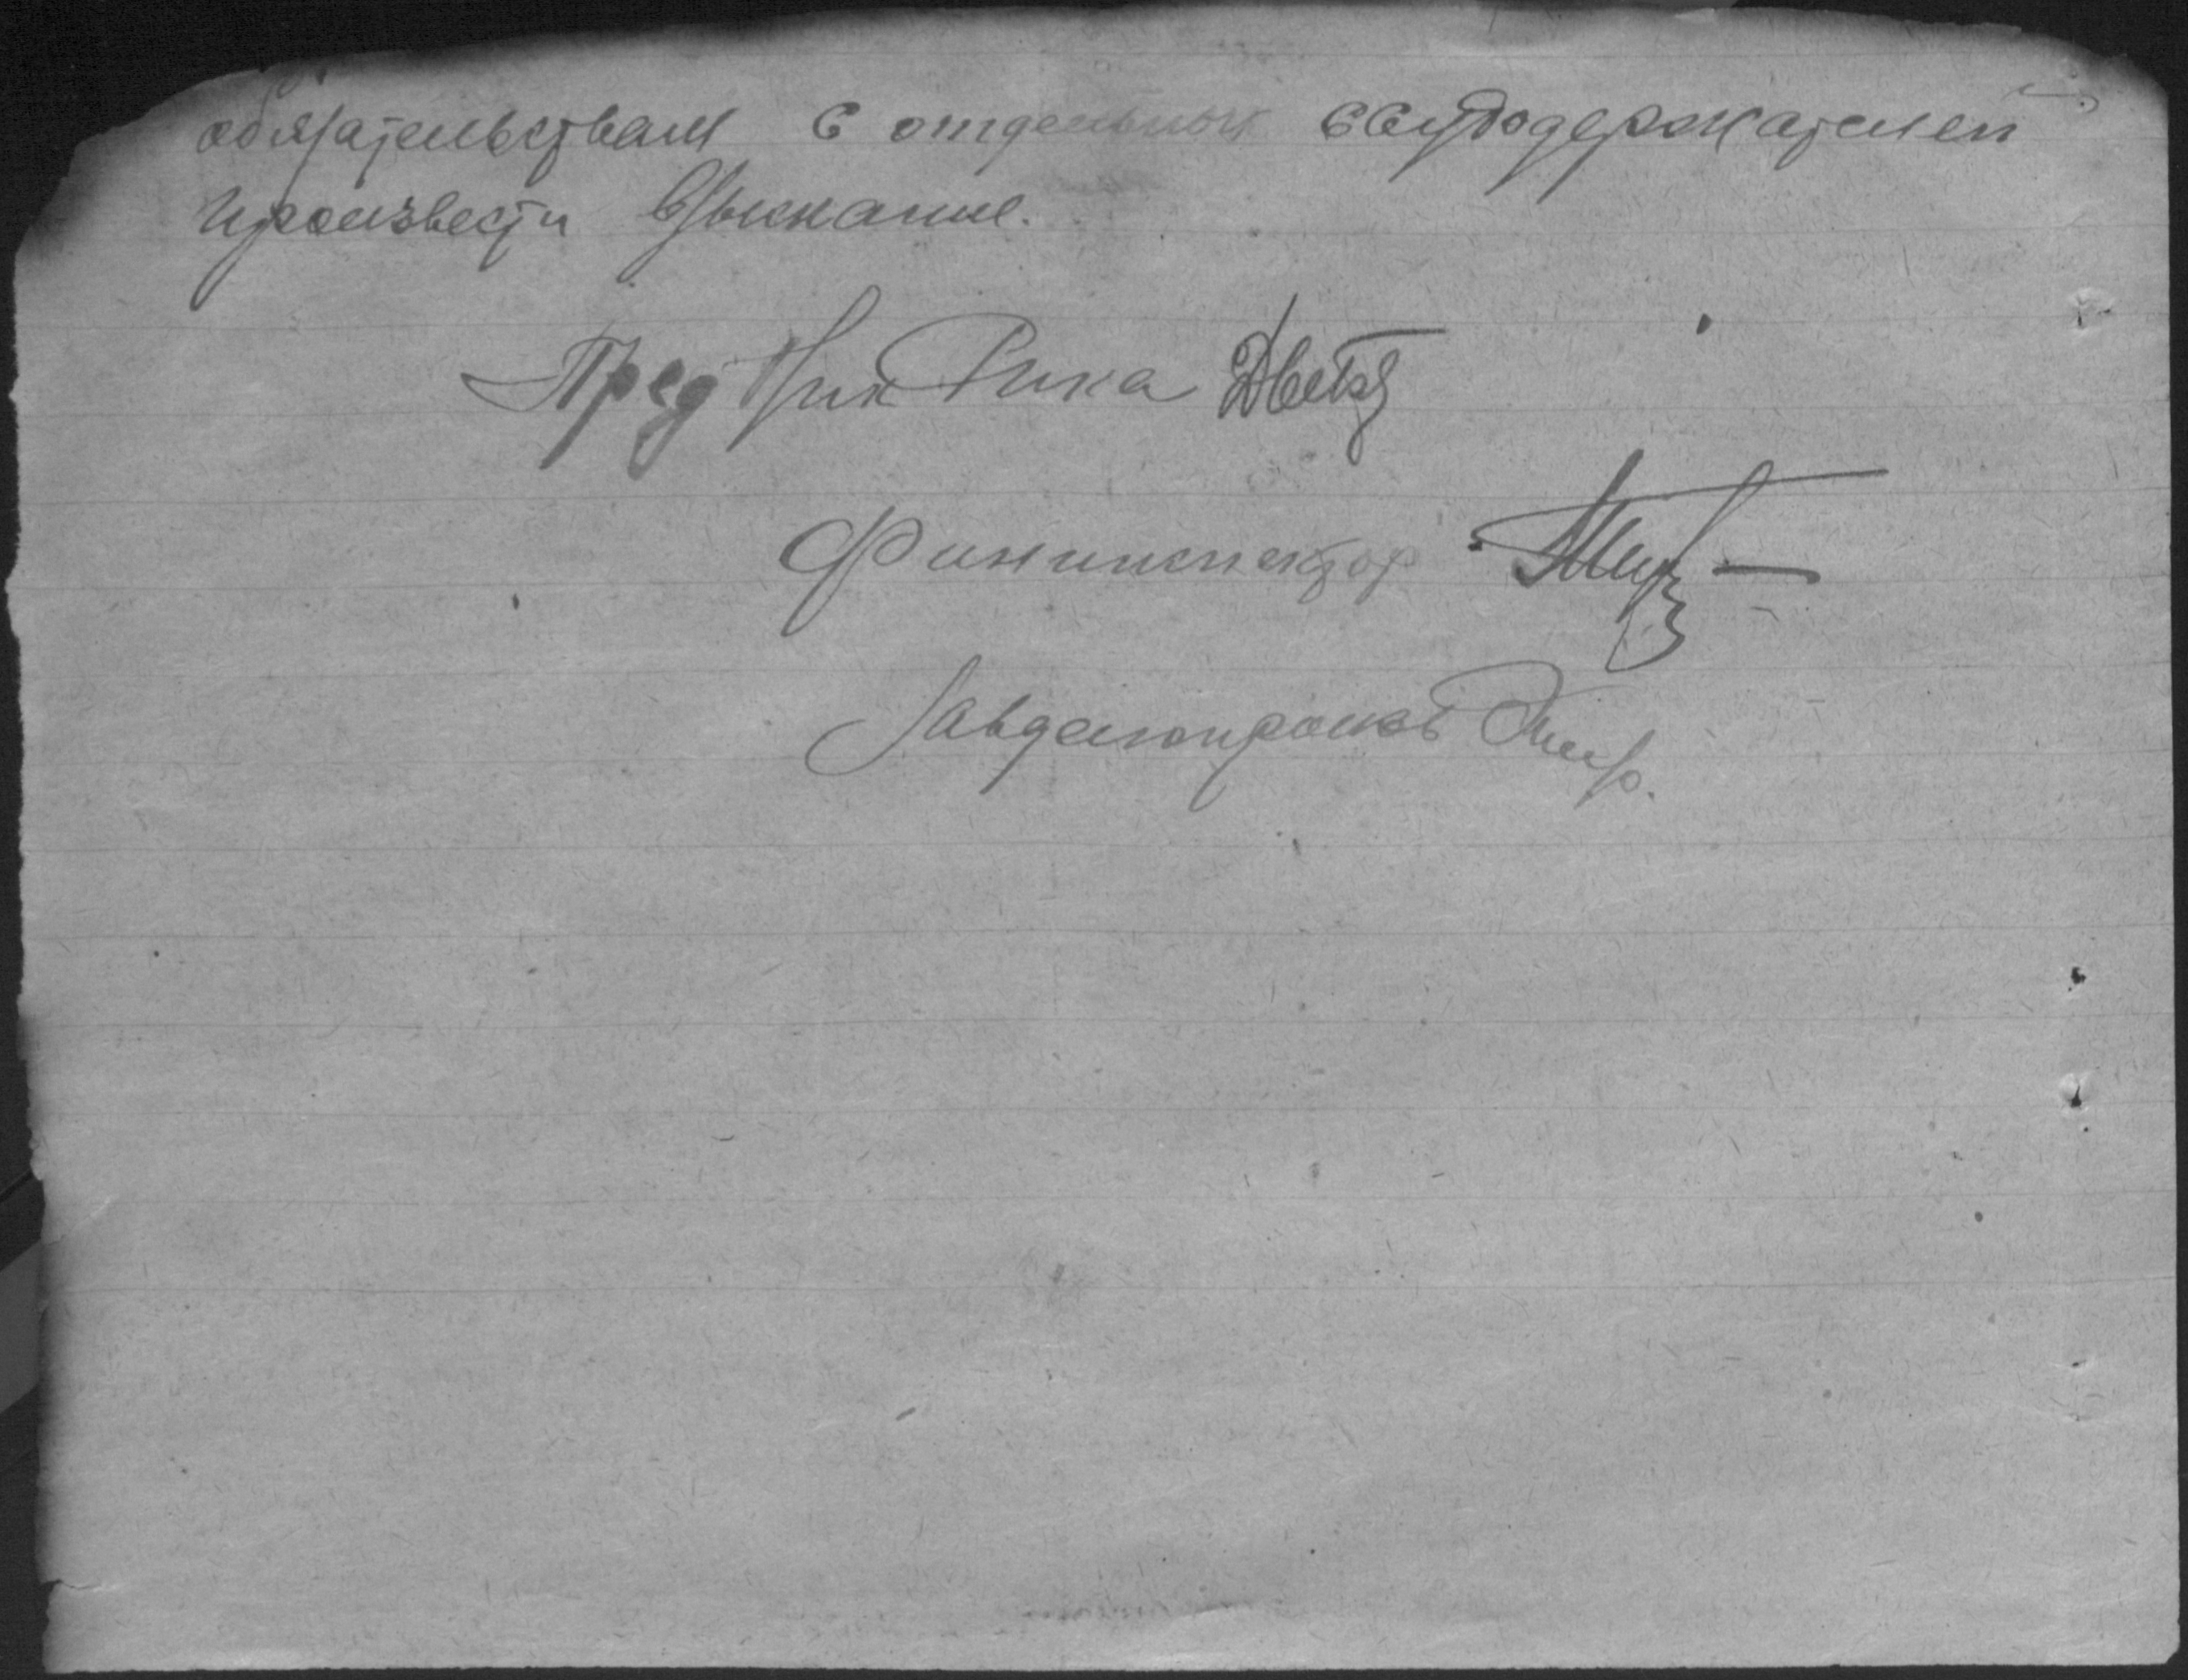 обязательствам с отдельных ссудодержателей
произвести взыскание.
Пред Рика
Фининспектор
Завделопроизв